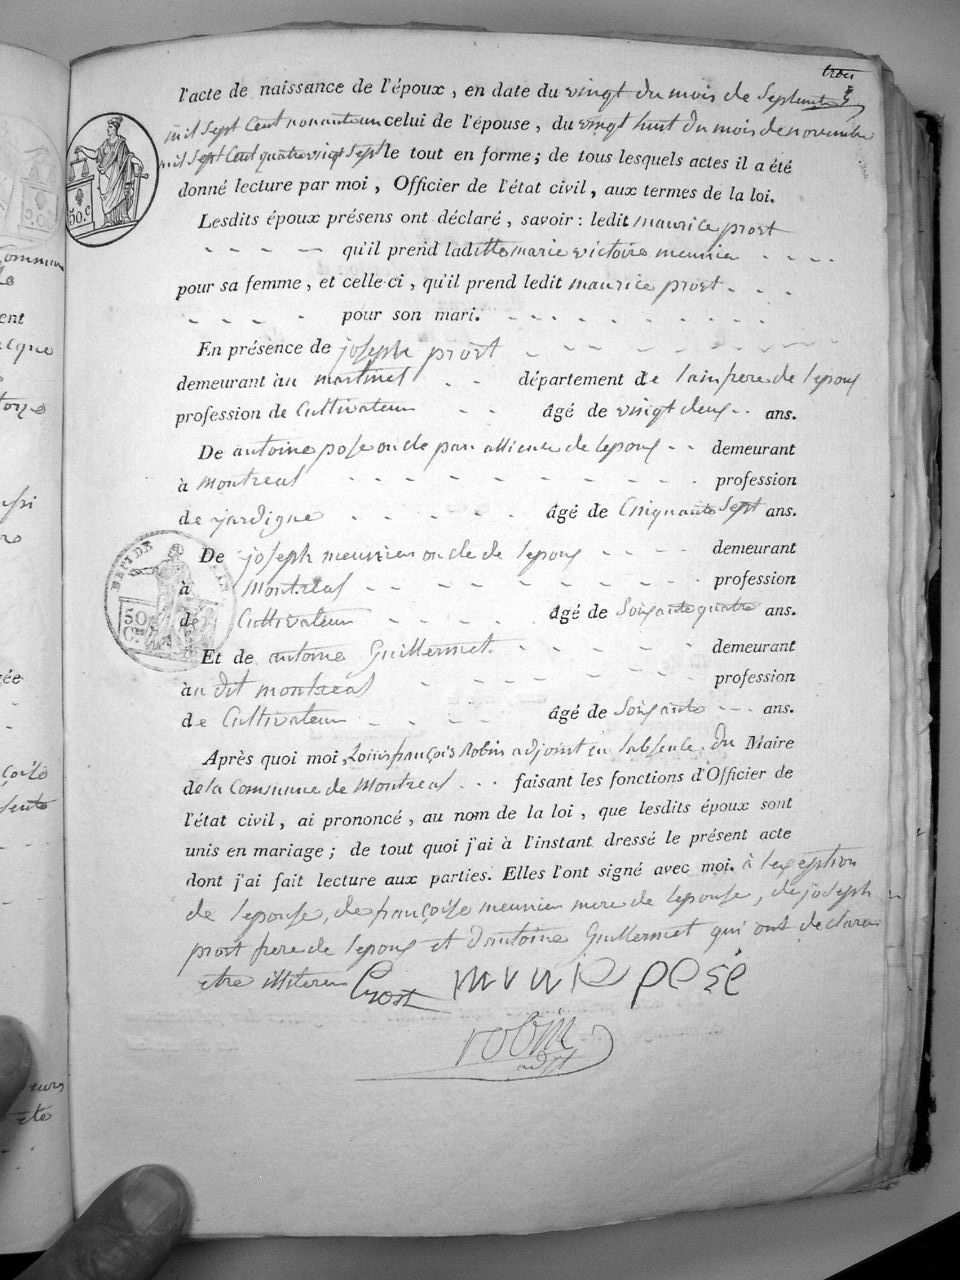 trois
l'acte de naissance de l'époux, en date du vingt du mois de Septembre
mil Sept Cent nonante un celui de l'épouse, du vingt huit du mois de novembre
mil Sept Cent quatre vingt Sept le tout en forme; de tous lesquels actes il a été
donné lecture par moi, Officier de l'état civil, aux termes de la loi.
50.c
Lesdits époux présens ont déclaré, savoir: ledit maurice prost
qu'il prend laditte marie victoire meunier
pour sa femme, et celle-ci, qu'il prend ledit maurice prost
pour son mari.
En présence de joseph prost
demeurant au martinet département de lain frere de lepoux
profession de Cultivateur âgé de vingt deux ans.
De antoine pose oncle par alliance de lepoux demeurant
à Montreal profession
de âgé de Cinquante Sept ans.
De joseph meunier oncle de lepoux demeurant
à Montreal profession
de Cultivateur âgé de Soixante quatre ans.
50
Cmes
Et de antoine Guillermet demeurant
au dit montréal profession
de Cultivateur âgé de Soixante ans.
Après quoi moi, Louis françois Robin adjoint en labsence du Maire
de la Commune de Montreal faisant les fonctions d'Officier de
l'état civil, ai prononcé, au nom de la loi, que lesdits époux sont
unis en mariage; de tout quoi j'ai à l'instant dressé le présent acte
dont j'ai fait lecture aux parties. Elles l'ont signé avec moi. à lexception
de lepouse, de françoise meunier mere de lepouse, de joseph
prost frere de lepoux et dantoine Guillermet qui ont declare
etre illiteres Prost pose
robin
adjt